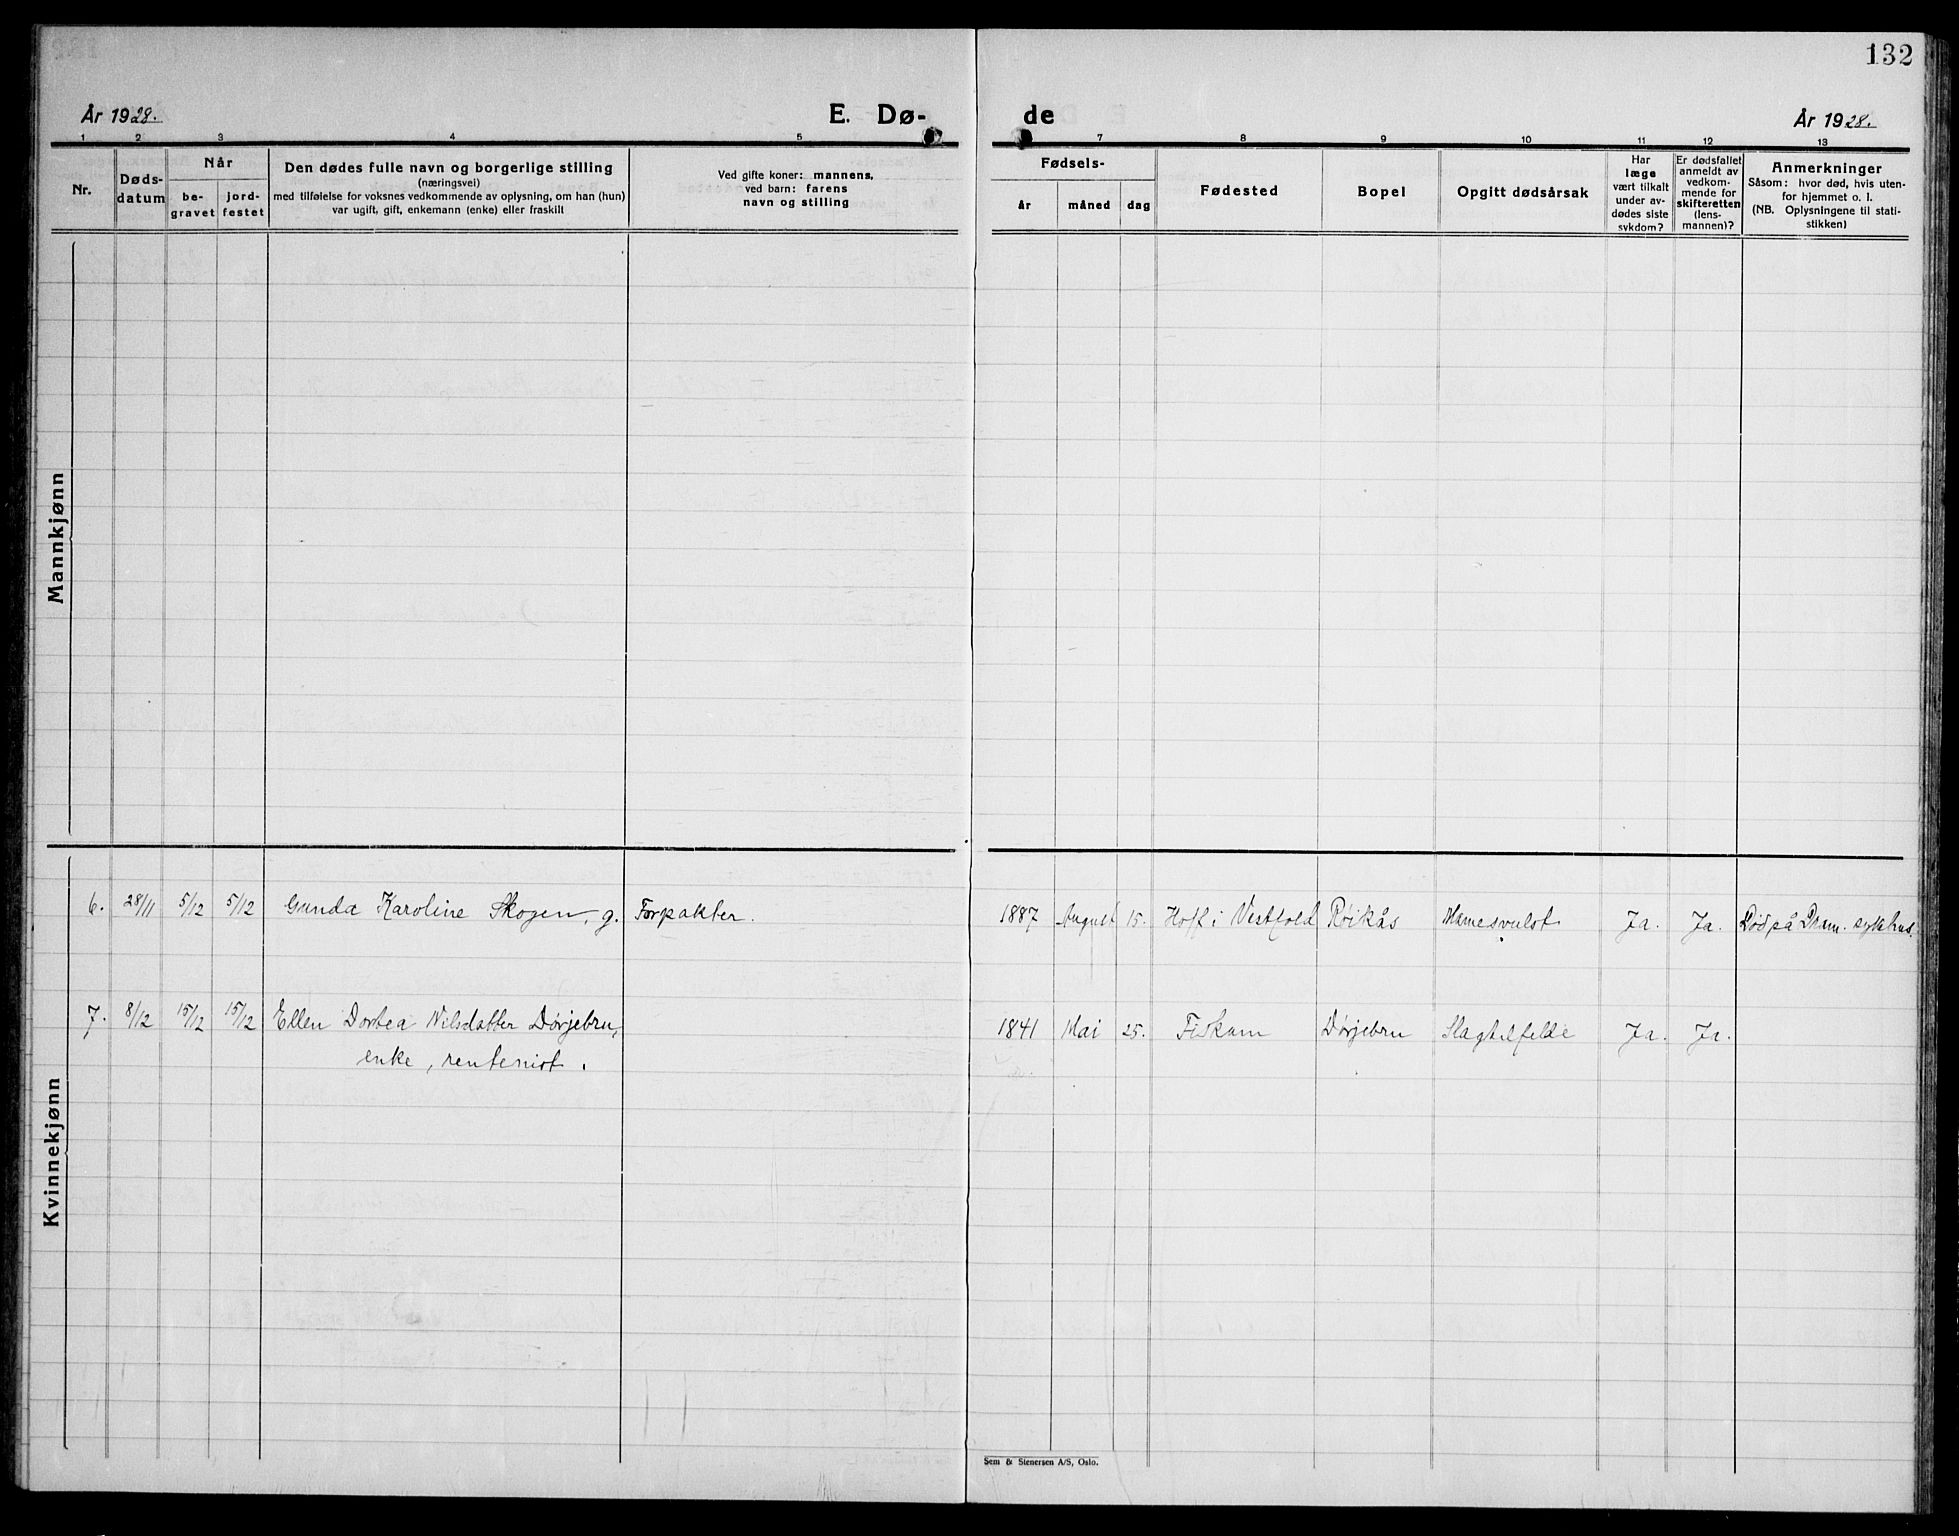 132
År 1928.
E. Dø-
de
År 1928.
1 2 3 4 5 7 8 9 10 11 12 13
Nr.
Døds-
datum
Når
be-
gravet
jord-
festet
Den dødes fulle navn og borgerlige stilling
(næringsvei)
med tilføielse for voksnes vedkommende av oplysning, om han (hun)
var ugift, gift, enkemann (enke) eller fraskilt
Ved gifte koner: mannens,
ved barn: farens
navn og stilling
Fødsels-
år måned dag
Fødested
Bopel
Opgitt dødsårsak
Har
læge
vært tilkalt
under av-
dødes siste
sykdom?
Er dødsfallet
anmeldt av
vedkom-
mende for
skifteretten
(lens-
mannen)?
Anmerkninger
Såsom: hvor død, hvis uten-
for hjemmet o. l.
(NB. Oplysningene til stati-
stikken)
Mannkjønn
Kvinnekjønn
6. 28/11 5/12 5/12 Gunda Karoline Skogen, g. Forpakter. 1887 August 15. Hoff i Vestfold Røikås Mamesvulst Ja. Ja. Död på Dram. sykhus.
7. 8/12 15/12 15/12 Ellen Dortea Nilsdatter Dørjebru, 1841 Mai 25. Fiskum Dørjebru Slagtilfelde Ja. Ja.
enke, rentenist.
Sem & Stenersen A/S, Oslo.